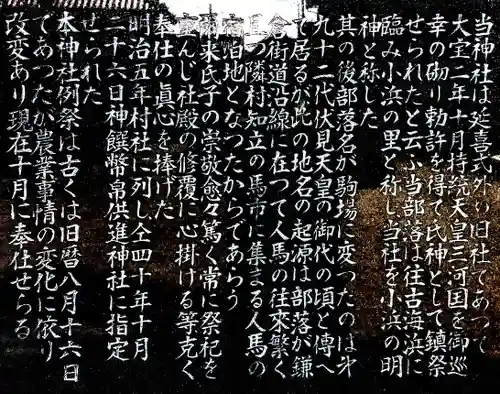 当神社は延喜式外の旧社であって
大宝二年十月持統天皇三河国を御巡
幸の砌り勅許を得て氏神として鎮祭
せられたと云ふ当部落は往古海浜に
臨み小浜の里と称し当社を小浜の明
神と称した
其の後部落名が駒場に変つたのは㐧
九十二代伏見天皇の御代の頃と傳へ
て居るが此の地名の起源は部落が鎌
倉街道沿線に在つて人馬の往來繁く
且つ隣村知立の馬市に集まる人馬の
宿泊地となつたからであらう
爾来氏子の崇敬愈々篤く常に祭祀を
重んじ社殿の修覆に心掛ける等克く
奉仕の眞心を捧げた
明治五年村社に列し仝四十年十月
二十六日神饌幣帛供進神社に指定
せられた
本神社例祭は古くは旧暦八月十六日
であつたが農業事情の変化に依り
改変あり現在十月に奉仕せらる